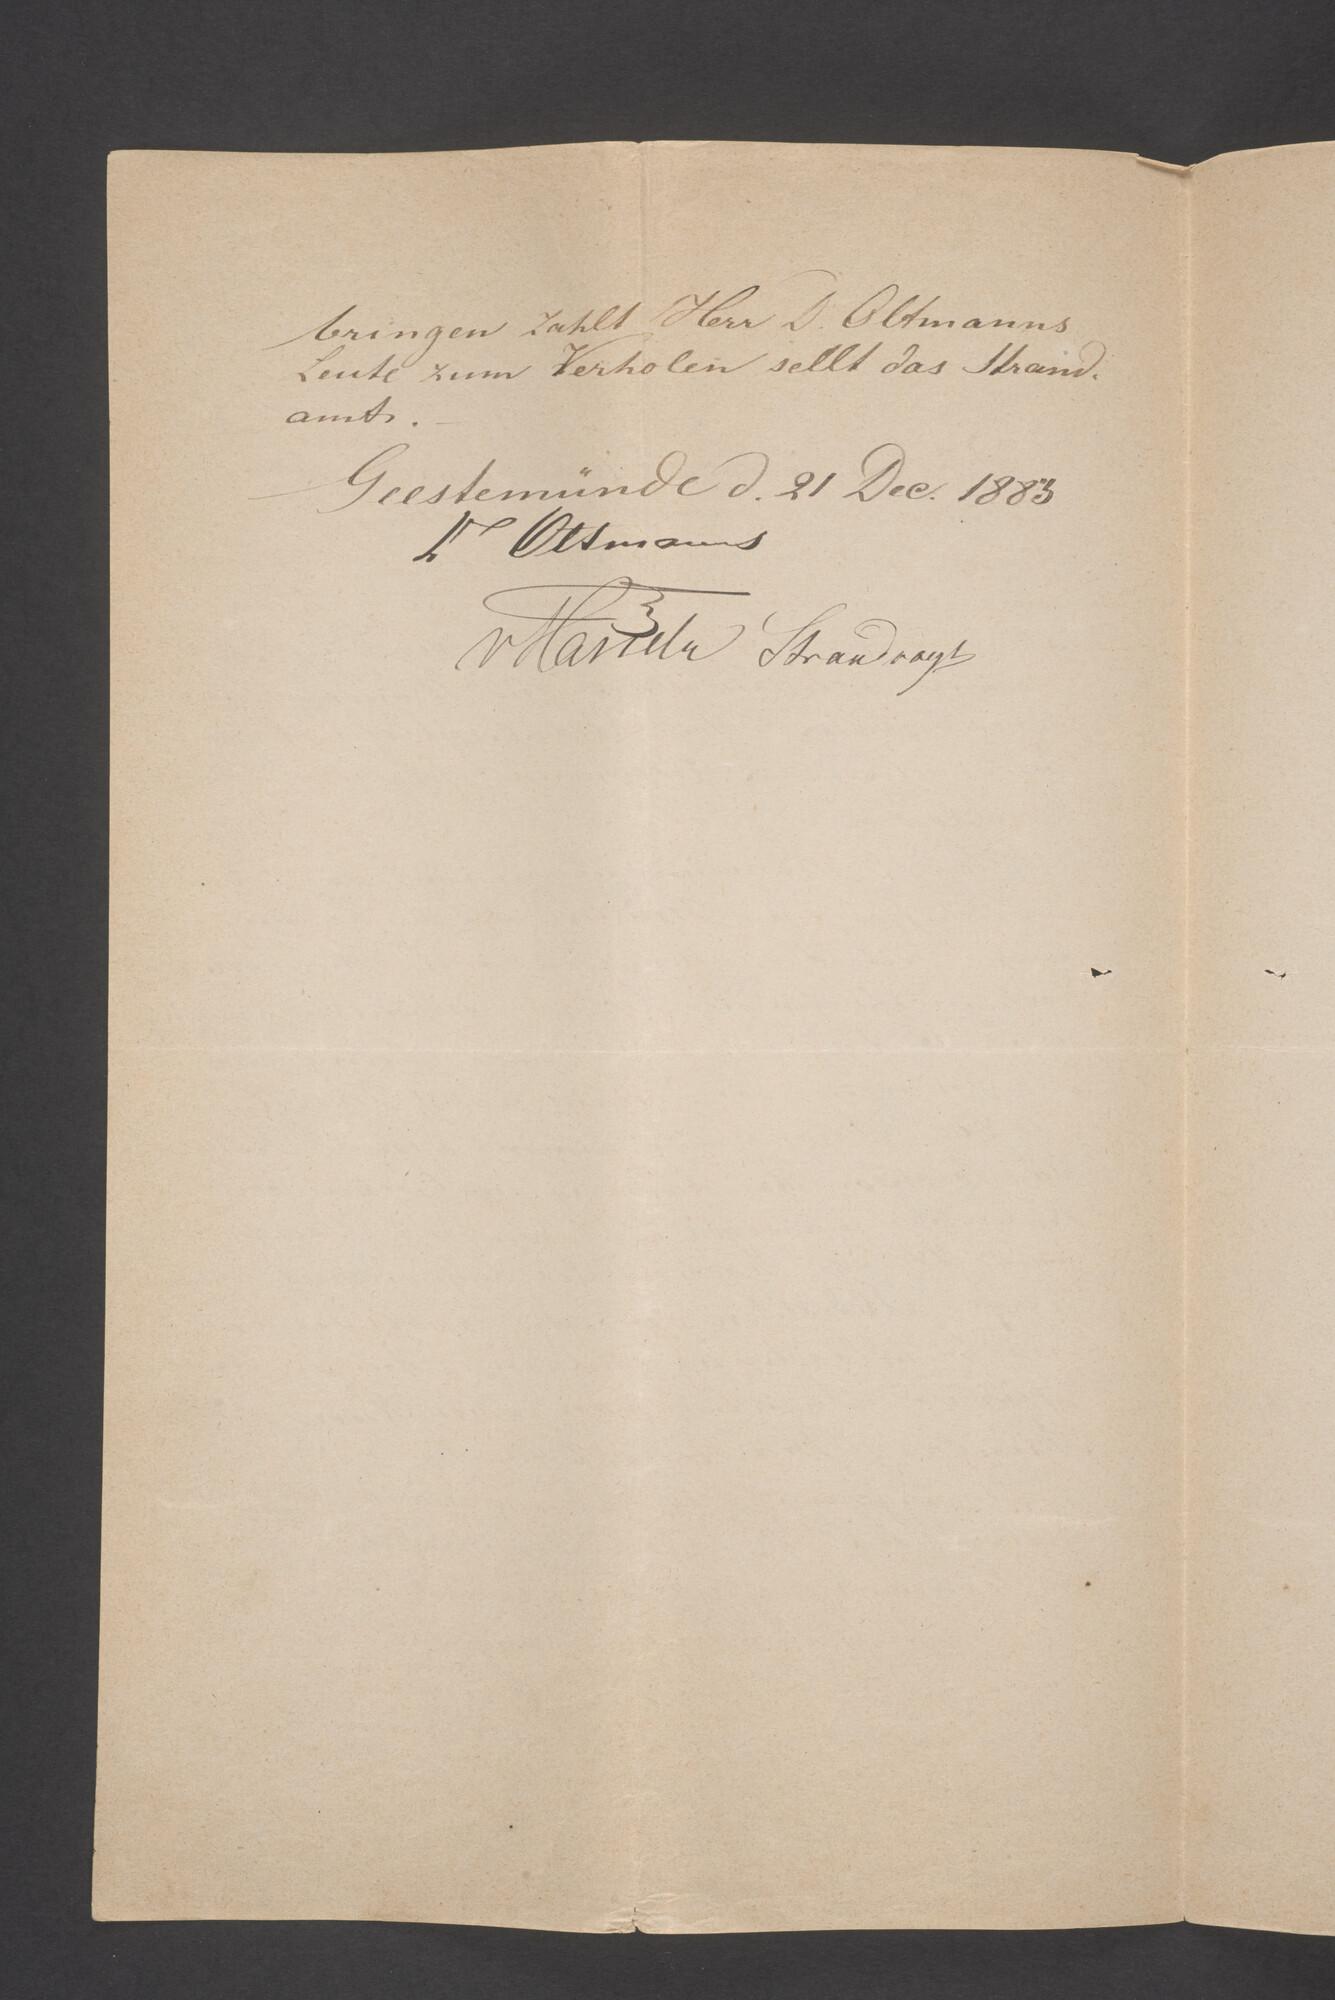 bringen zahlt Herr D. Oltmanns
Leute zum Verholen sellt das Strand.
amt. —
Geestemünde d. 21 Dec. 1883
Oltmanns
Strandvogt